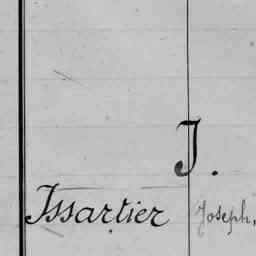 J.
Issartier Joseph,